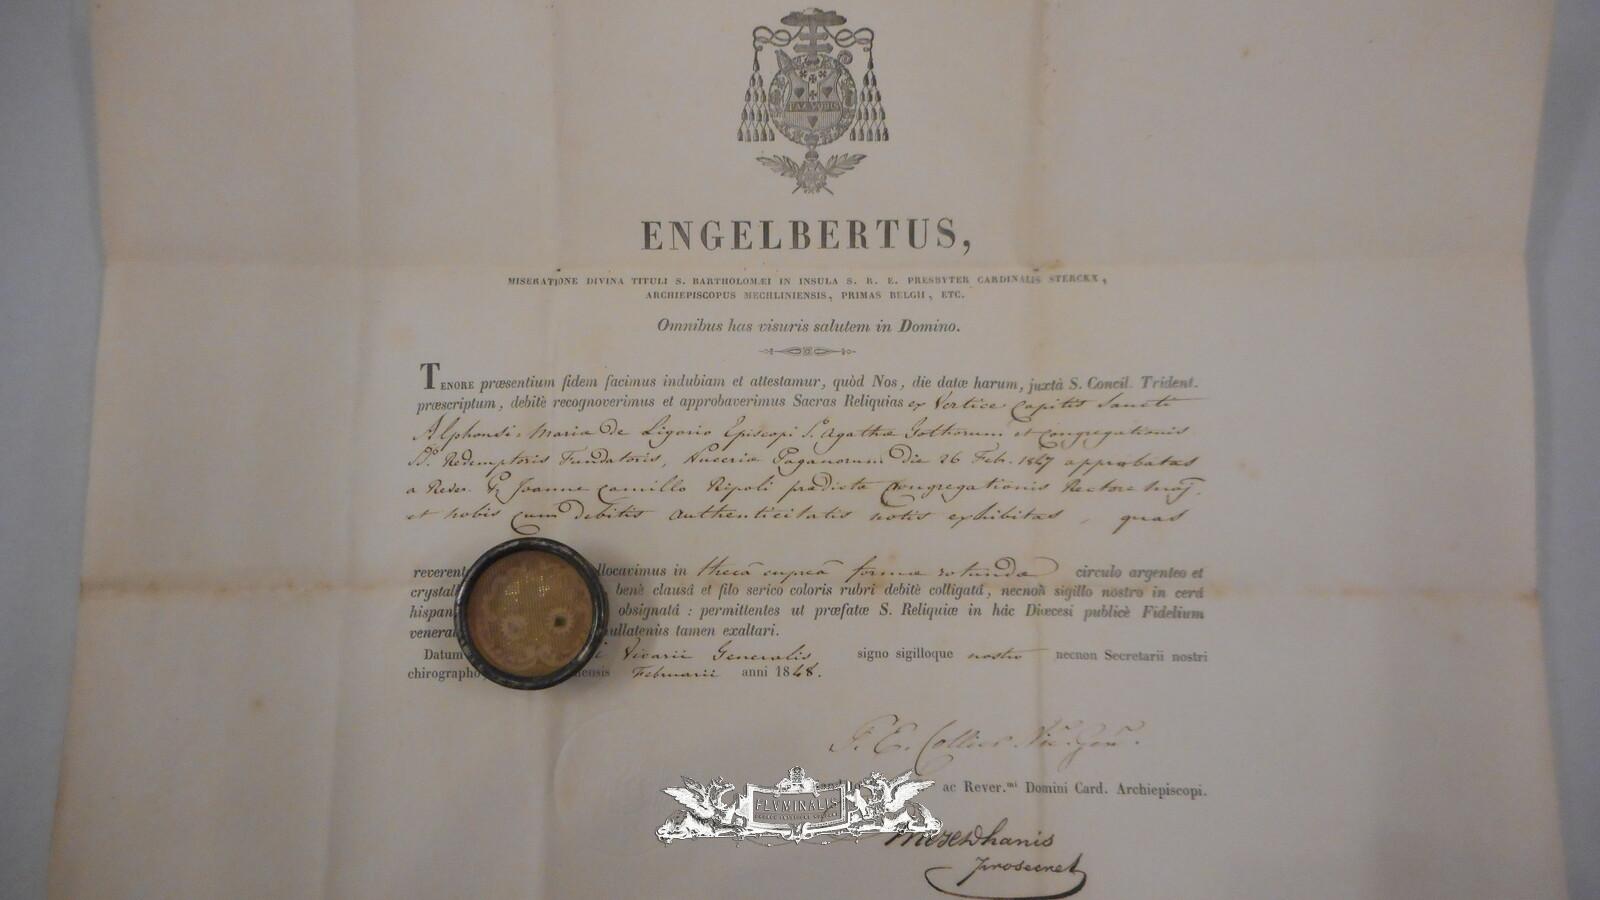 PAX VOBIS
ENGELBERTUS,
MISERATIONE DIVINA TITULI S. BARTHOLOMÆI IN INSULA S. R. E. PRESBYTER CARDINALIS STERCKX,
ARCHIEPISCOPUS MECHLINIENSIS, PRIMAS BELGII, ETC.
Omnibus has visuris salutem in Domino.
TENORE præsentium fidem facimus indubiam et attestamur, quòd Nos, die datæ harum, juxtà S. Concil. Trident.
præscriptum, debitè recognoverimus et approbaverimus Sacras Reliquias ex Vertice Capitis Sancti
Alphonsi-Mariæ De Ligorio Episcopi S. Agathæ Gothorum et Congregationis
SS. Redemptoris Fundatoris, Nuceriæ Paganorum Die 26 Feb. 1847 approbatas
a Rever. P. Joanne Camillo Ripoli prædictæ Congregationis Rectore Maj.
et nobis cum Debitis authenticitatis notis exhibitas, quas
reverent llocavimus in thecâ cupreâ formæ rotundæ circulo argenteo et
crystall benè clausâ et filo serico coloris rubri debitè colligatâ, necnon sigillo nostro in cerâ
hispan obsignatâ : permittentes ut præfatæ S. Reliquiæ in hâc Diœcesi publicè Fidelium
venera ullatenùs tamen exaltari.
Datum i Vicarii Generalis signo sigilloque nostro necnon Secretarii nostri
chirographo ensis Februarii anni 1848.
P. E. Collier Vic. Gen.
ac Rever.mi Domini Card. Archiepiscopi.
FLUMINALIS
prosecret